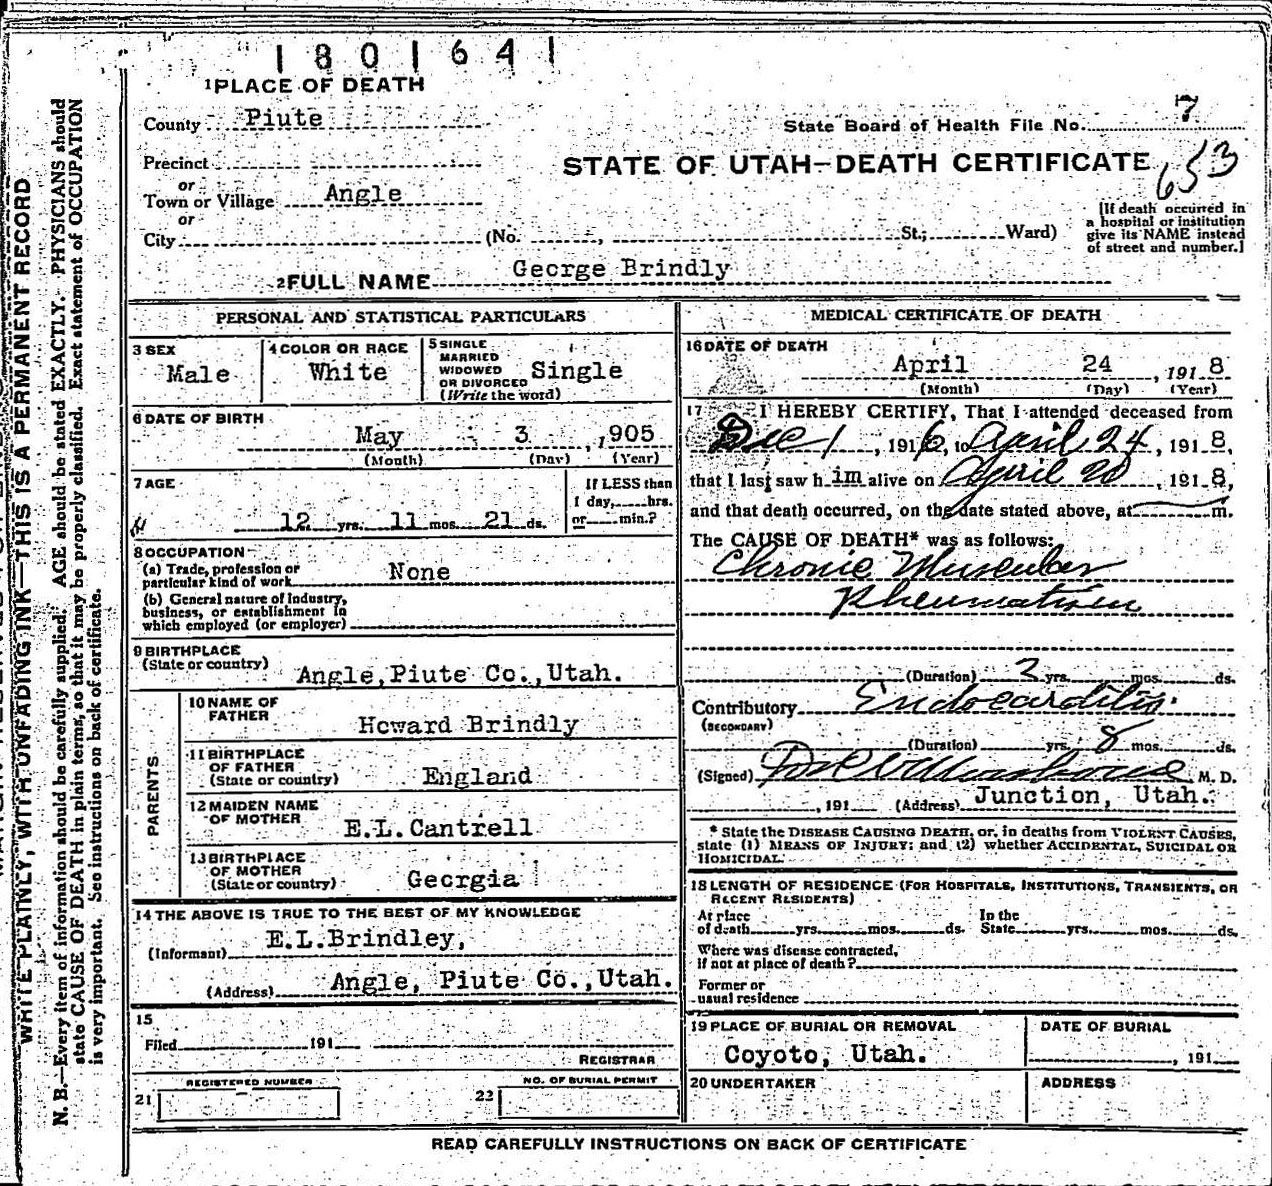 1801641
1 PLACE OF DEATH
County Piute
State Board of Health File No. 7
Precinct
STATE OF UTAH—DEATH CERTIFICATE
653
or
Town or Village Angle
or
City (No. , St.; Ward)
[If death occurred in
a hospital or institution
give its NAME instead
of street and number.]
2 FULL NAME George Brindly
PERSONAL AND STATISTICAL PARTICULARS
3 SEX
Male
4 COLOR OR RACE
White
5 SINGLE
MARRIED
WIDOWED
OR DIVORCED
(Write the word)
Single
6 DATE OF BIRTH
May 3 , 1905
(Month) (Day) (Year)
7 AGE
12 yrs. 11 mos. 21 ds.
If LESS than
1 day, hrs.
or min.?
8 OCCUPATION
(a) Trade, profession or
particular kind of work None
(b) General nature of industry,
business, or establishment in
which employed (or employer)
9 BIRTHPLACE
(State or country) Angle, Piute Co., Utah.
PARENTS
10 NAME OF
FATHER Howard Brindly
11 BIRTHPLACE
OF FATHER
(State or country) England
12 MAIDEN NAME
OF MOTHER E.L.Cantrell
13 BIRTHPLACE
OF MOTHER
(State or country) Georgia
14 THE ABOVE IS TRUE TO THE BEST OF MY KNOWLEDGE
(Informant) E.L.Brindley,
(Address) Angle, Piute Co., Utah.
15
Filed 191
REGISTRAR
REGISTERED NUMBER
21
NO. OF BURIAL PERMIT
22
MEDICAL CERTIFICATE OF DEATH
16 DATE OF DEATH
April 24 , 1918
(Month) (Day) (Year)
17 I HEREBY CERTIFY, That I attended deceased from
Dec 1 , 1916, to April 24 , 1918,
that I last saw him alive on April 20 , 1918,
and that death occurred, on the date stated above, at m.
The CAUSE OF DEATH* was as follows:
Chronic Muscular
Rheumatism
(Duration) 3 yrs. mos. ds.
Contributory Endocarditis.
(SECONDARY)
(Duration) yrs. 8 mos. ds.
(Signed) M. D.
, 191 (Address) Junction, Utah.
* State the DISEASE CAUSING DEATH, or, in deaths from VIOLENT CAUSES,
state (1) MEANS OF INJURY; and (2) whether ACCIDENTAL, SUICIDAL OR
HOMICIDAL.
18 LENGTH OF RESIDENCE (FOR HOSPITALS, INSTITUTIONS, TRANSIENTS, OR
RECENT RESIDENTS)
At place
of death yrs. mos. ds.
In the
State yrs. mos. ds.
Where was disease contracted,
if not at place of death?
Former or
usual residence
19 PLACE OF BURIAL OR REMOVAL
Coyoto, Utah.
DATE OF BURIAL
, 191
20 UNDERTAKER
ADDRESS
READ CAREFULLY INSTRUCTIONS ON BACK OF CERTIFICATE
WRITE PLAINLY, WITH UNFADING INK—THIS IS A PERMANENT RECORD
N. B.—Every item of information should be carefully supplied. AGE should be stated EXACTLY. PHYSICIANS should
state CAUSE OF DEATH in plain terms, so that it may be properly classified. Exact statement of OCCUPATION
is very important. See instructions on back of certificate.